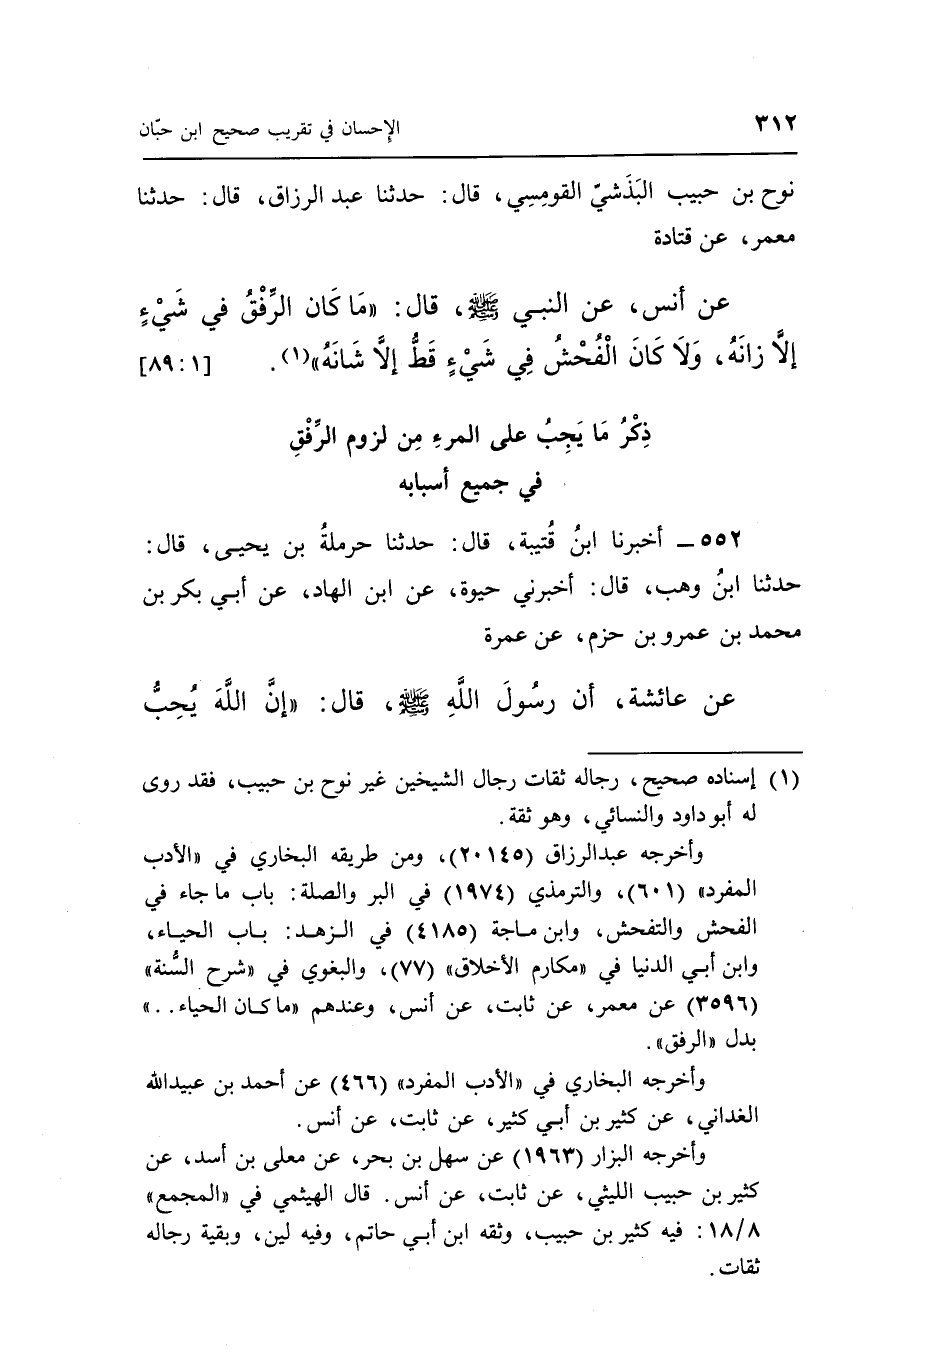 ٣١٢ الإحسان في تقريب صحيح ابن حبّان
نوح بن حبيب البَذَشيّ القومِسِي، قال: حدثنا عبد الرزاق، قال: حدثنا
معمر، عن قتادة
عن أنس، عن النبـي ﷺ، قال: «مَا كَان الرِّفْقُ في شَيْءٍ
إلاَّ زانَهُ، وَلاَ كَانَ الْفُحْشُ فِي شَيْءٍ قَطُّ إلاَّ شَانَهُ»(١). [١:٨٩]
ذِكْرُ مَا يَجِبُ على المرءِ مِن لزوم الرِّفْقِ
في جميع أسبابه
٥٥٢ ـ أخبرنا ابنُ قُتيبة، قال: حدثنا حرملةُ بن يحيـى، قال:
حدثنا ابنُ وهب، قال: أخبرني حيوة، عن ابن الهاد، عن أبـي بكر بن
محمد بن عمرو بن حزم، عن عمرة
عن عائشة، أن رسُولَ اللَّهِ ﷺ، قال: «إنَّ اللَّهَ يُحِبُّ
(١) إسناده صحيح، رجاله ثقات رجال الشيخين غير نوح بن حبيب، فقد روى
له أبو داود والنسائي، وهو ثقة.
وأخرجه عبدالرزاق (٢٠١٤٥)، ومن طريقه البخاري في «الأدب
المفرد» (٦٠١)، والترمذي (١٩٧٤) في البر والصلة: باب ما جاء في
الفحش والتفحش، وابن مـاجة (٤١٨٥) في الـزهـد: بـاب الحيـاء،
وابن أبـي الدنيا في «مكارم الأخلاق» (٧٧)، والبغوي في «شرح السُّنة»
(٣٥٩٦) عن معمر، عن ثابت، عن أنس، وعندهم «ما كـان الحياء. . .»
بدل «الرفق».
وأخرجه البخاري في «الأدب المفرد» (٤٦٦) عن أحمد بن عبيدالله
الغداني، عن كثير بن أبـي كثير، عن ثابت، عن أنس.
وأخرجه البزار (١٩٦٣) عن سهل بن بحر، عن معلى بن أسد، عن
كثير بن حبيب الليثي، عن ثابت، عن أنس. قال الهيثمي في «المجمع»
١٨/٨: فيه كثير بن حبيب، وثقه ابن أبـي حاتم، وفيه لين، وبقية رجاله
ثقات.